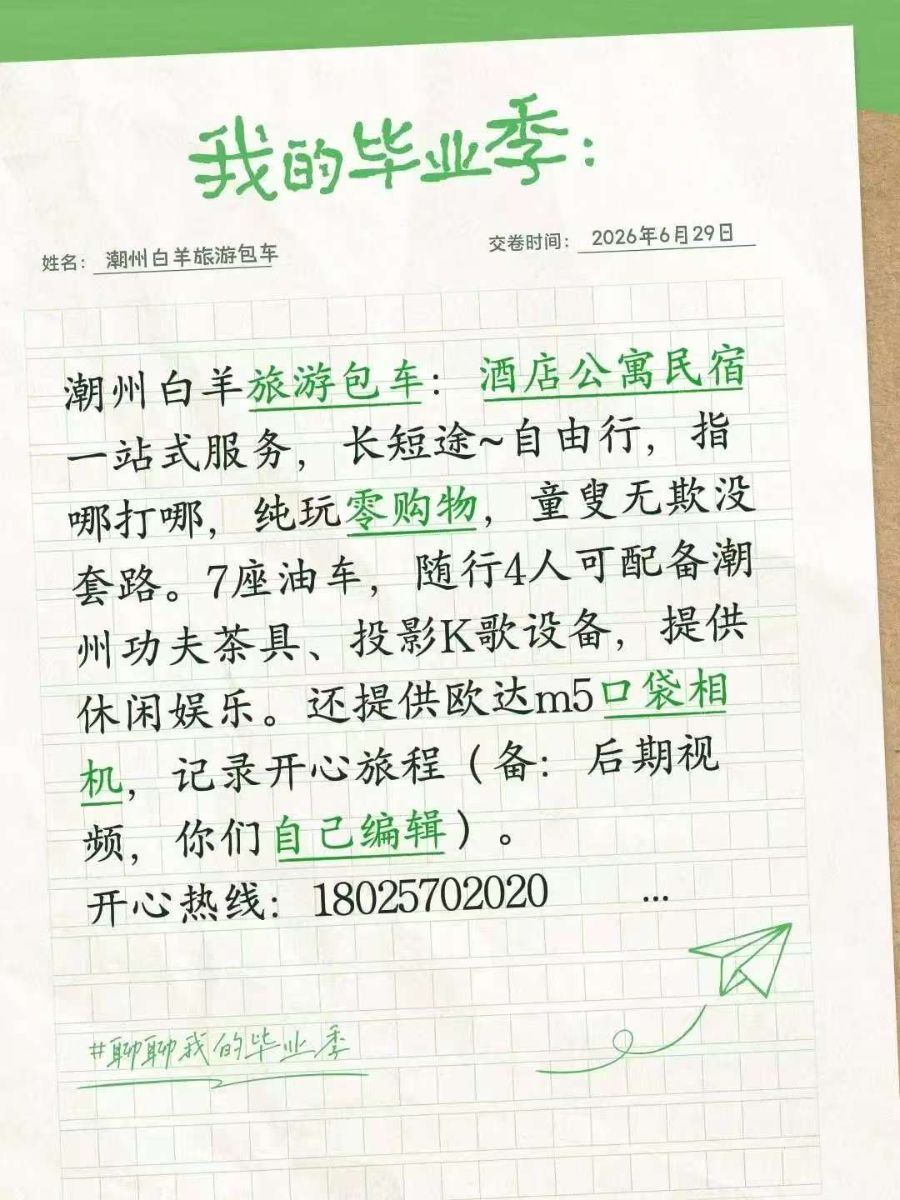 我的毕业季：
姓名： 潮州白羊旅游包车
交卷时间： 2026年6月29日
潮州白羊旅游包车：酒店公寓民宿
一站式服务，长短途~自由行，指
哪打哪，纯玩零购物，童叟无欺没
套路。7座油车，随行4人可配备潮
州功夫茶具、投影K歌设备，提供
休闲娱乐。还提供欧达m5口袋相
机，记录开心旅程（备：后期视
频，你们自己编辑）。
开心热线：18025702020 ...
#聊聊我的毕业季